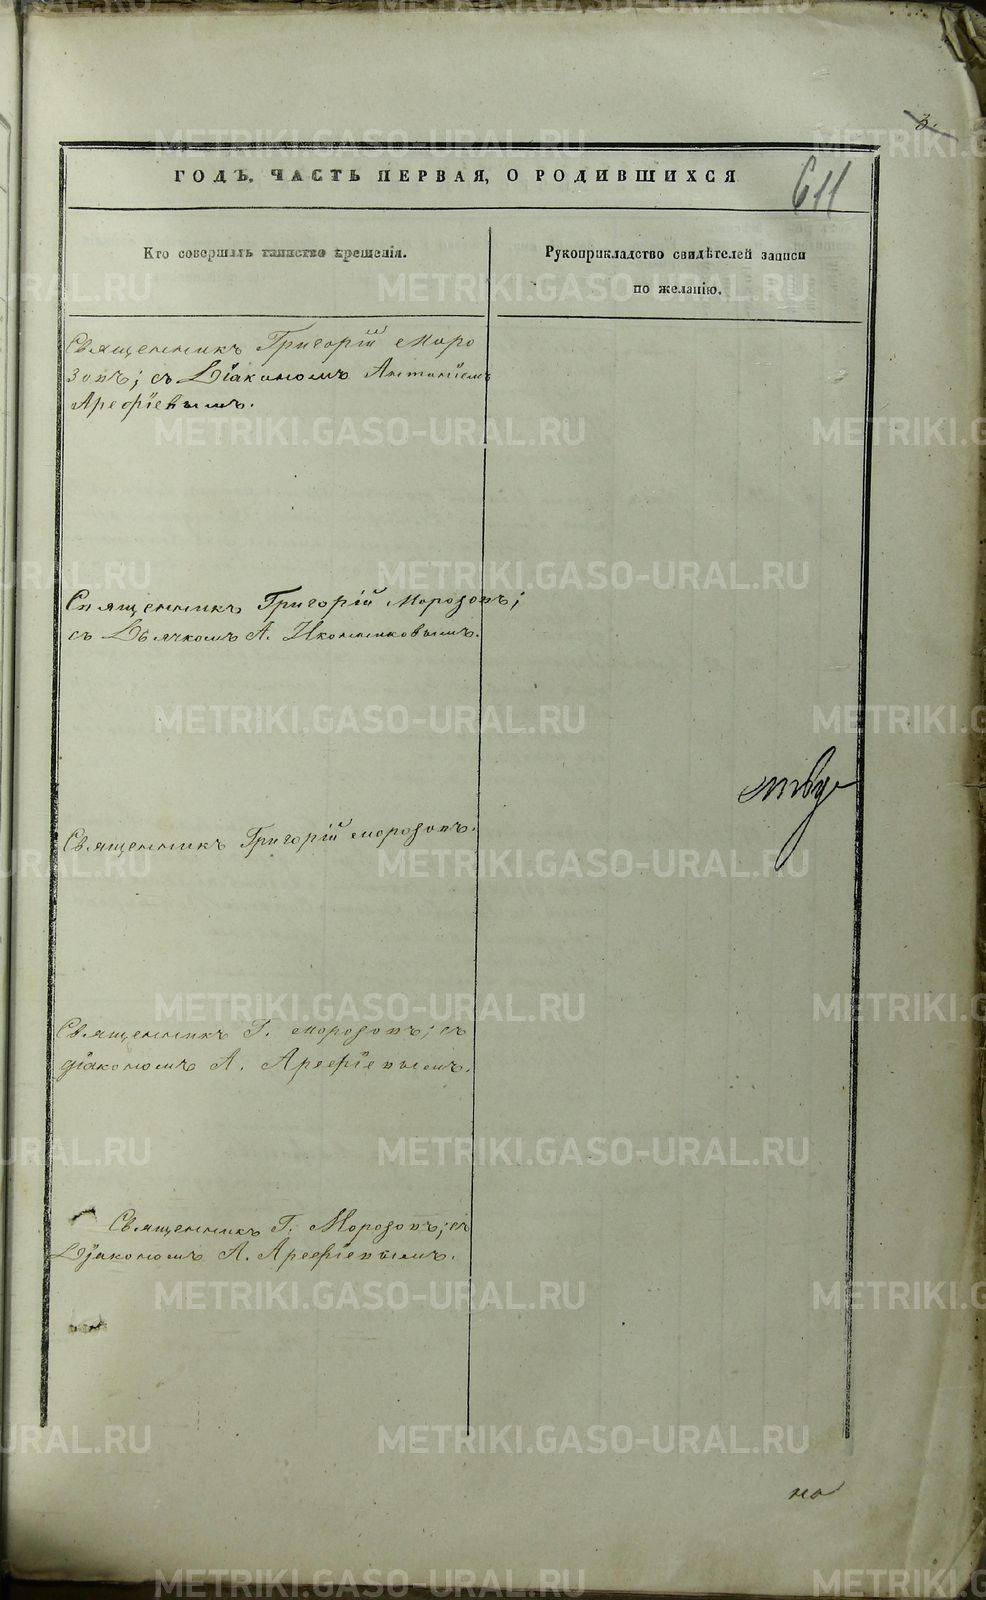 3.
ГОДЪ. ЧАСТЬ ПЕРВАЯ, О РОДИВШИХСЯ
611
Кто совершалъ таинство крещенія.
Рукоприкладство свидѣтелей записи
по желанію.
Священникъ Григорій Моро
зовъ; съ Діакономъ Антоніемъ
Арефіевымъ.
Священникъ Григорій Морозовъ;
съ Дьячкомъ А. Иконниковымъ.
Священникъ Григорій Морозовъ.
Священникъ Г. Морозовъ; съ
діакономъ А. Арефіевымъ.
Священникъ Г. Морозовъ; съ
Діакономъ А. Арефіевымъ.
но
METRIKI.GASO-URAL.RU